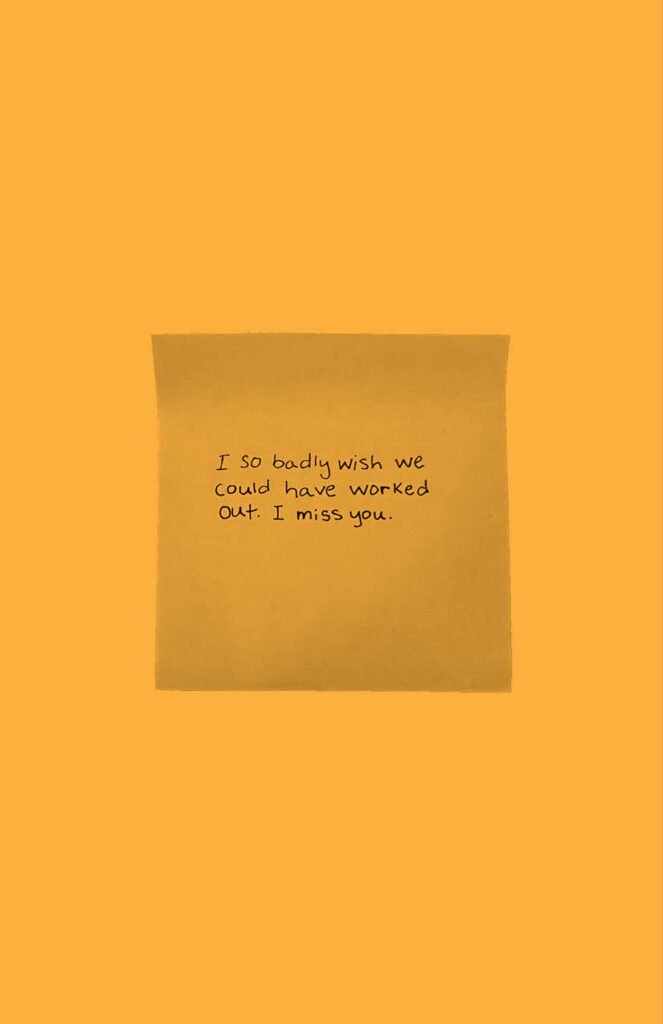 I so badly wish we
could have worked
out. I miss you.